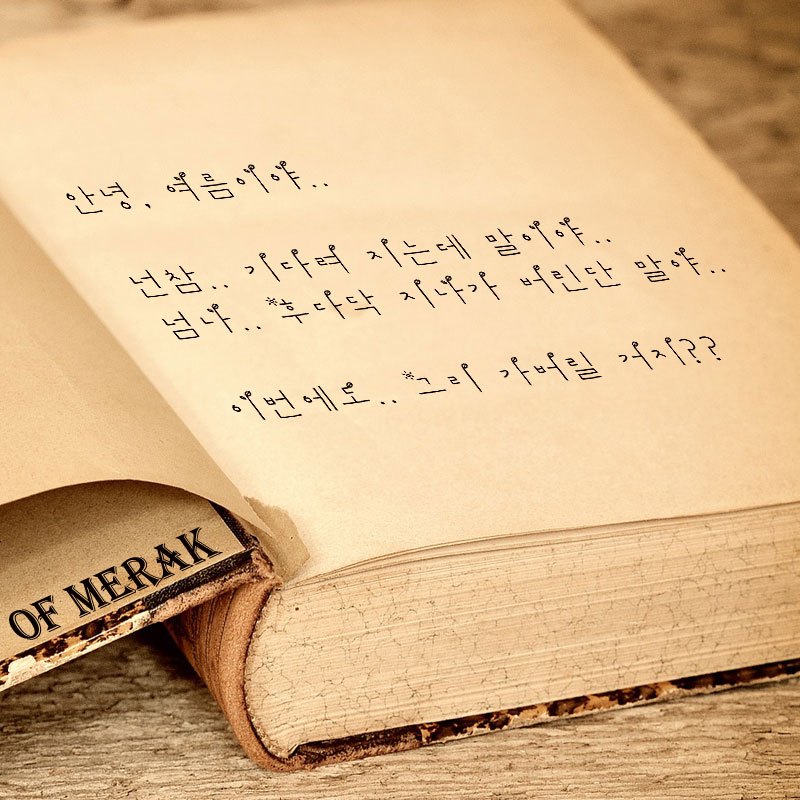 안녕, 여름이야..
넌참.. 기다려 지는데 말이야..
넘나.. *후다닥 지나가 버린단 말야..
이번에도.. *그리 가버릴 거지??
OF MERAK